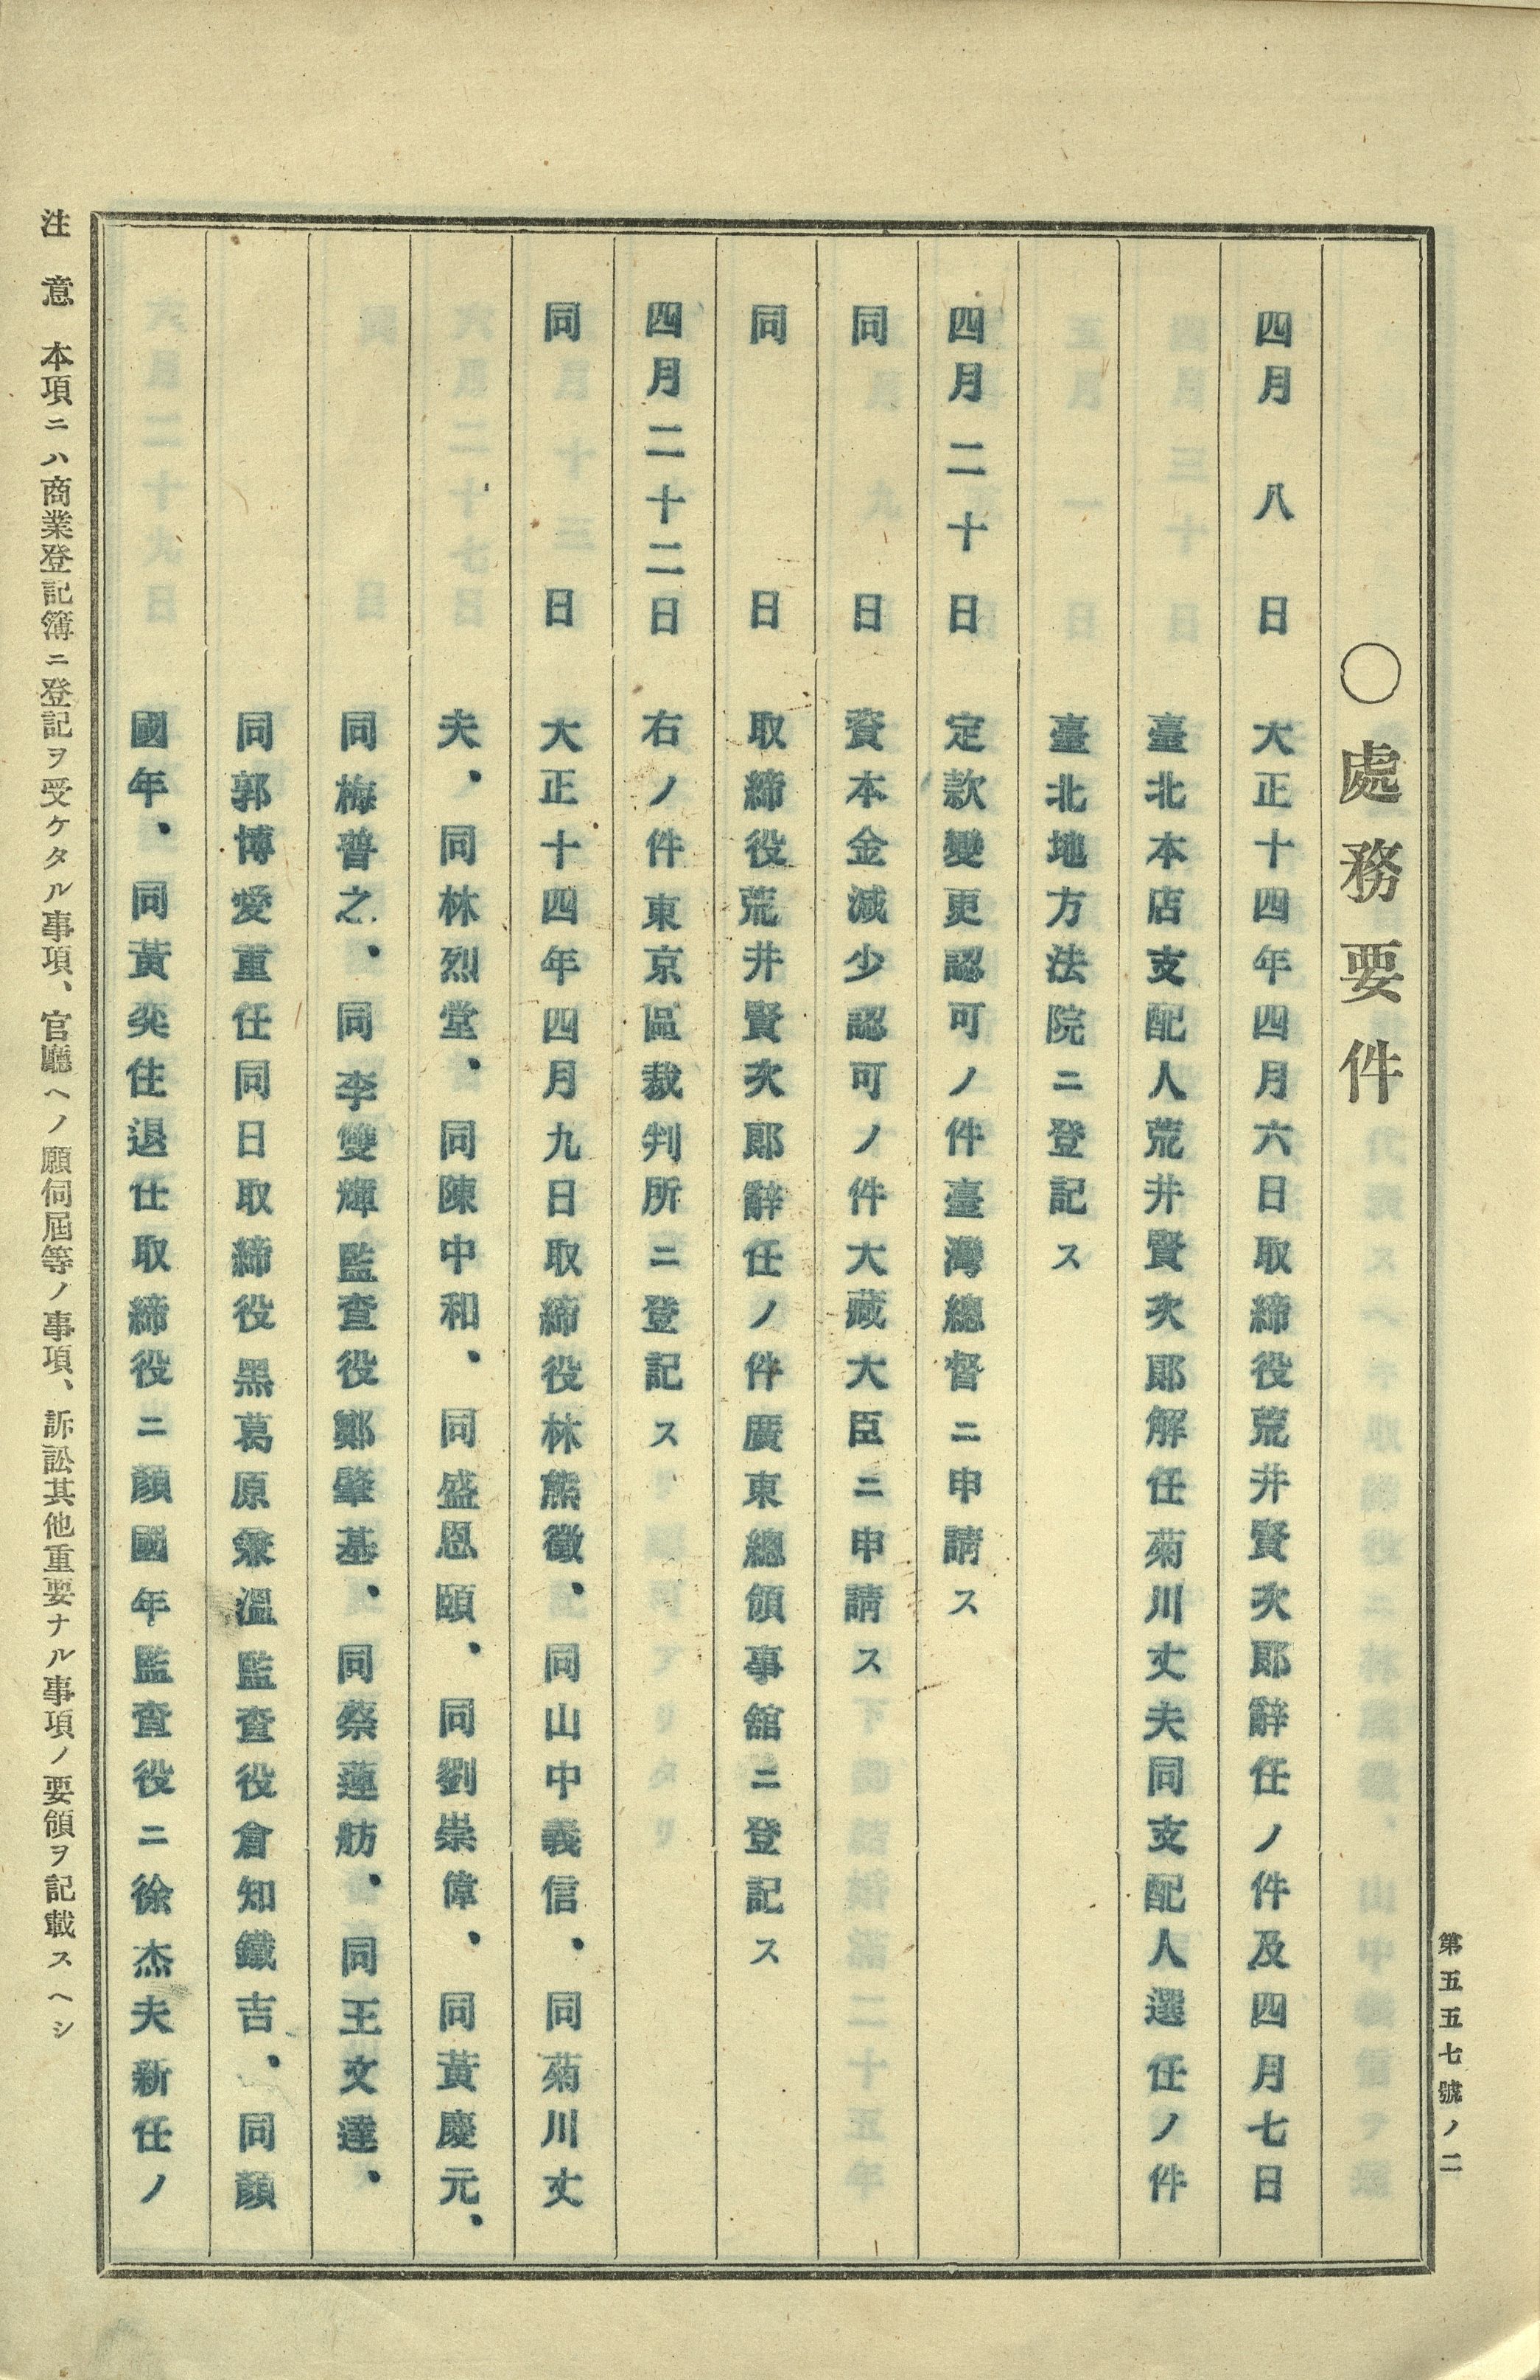 第五五七號ノ二
〇處務要件
四月八日 大正十四年四月六日取締役荒井賢次郎辭任ノ件及四月七日
臺北本店支配人荒井賢次郎解任菊川丈夫同支配人選任ノ件
臺北地方法院ニ登記ス
四月二十日 定款變更認可ノ件臺灣總督ニ申請ス
同日 資本金減少認可ノ件大藏大臣ニ申請ス
同日 取締役荒井賢次郎辭任ノ件廣東總領事舘ニ登記ス
四月二十二日 右ノ件東京區裁判所ニ登記ス
同日 大正十四年四月九日取締役林熊徵、同山中義信、同菊川丈
夫、同林烈堂、同陳中和、同盛恩頤、同劉崇偉、同黃慶元、
同梅普之、同李雙輝監查役鄭肇基、同蔡蓮舫、同王文達、
同郭博愛重任同日取締役黑葛原兼溫監查役倉知鐵吉、同顏
國年、同黃奕住退任取締役ニ顏國年監查役ニ徐杰夫新任ノ
注意 本項ニハ商業登記簿ニ登記ヲ受ケタル事項、官廳ヘノ願伺屆等ノ事項、訴訟其他重要ナル事項ノ要領ヲ記載スヘシ